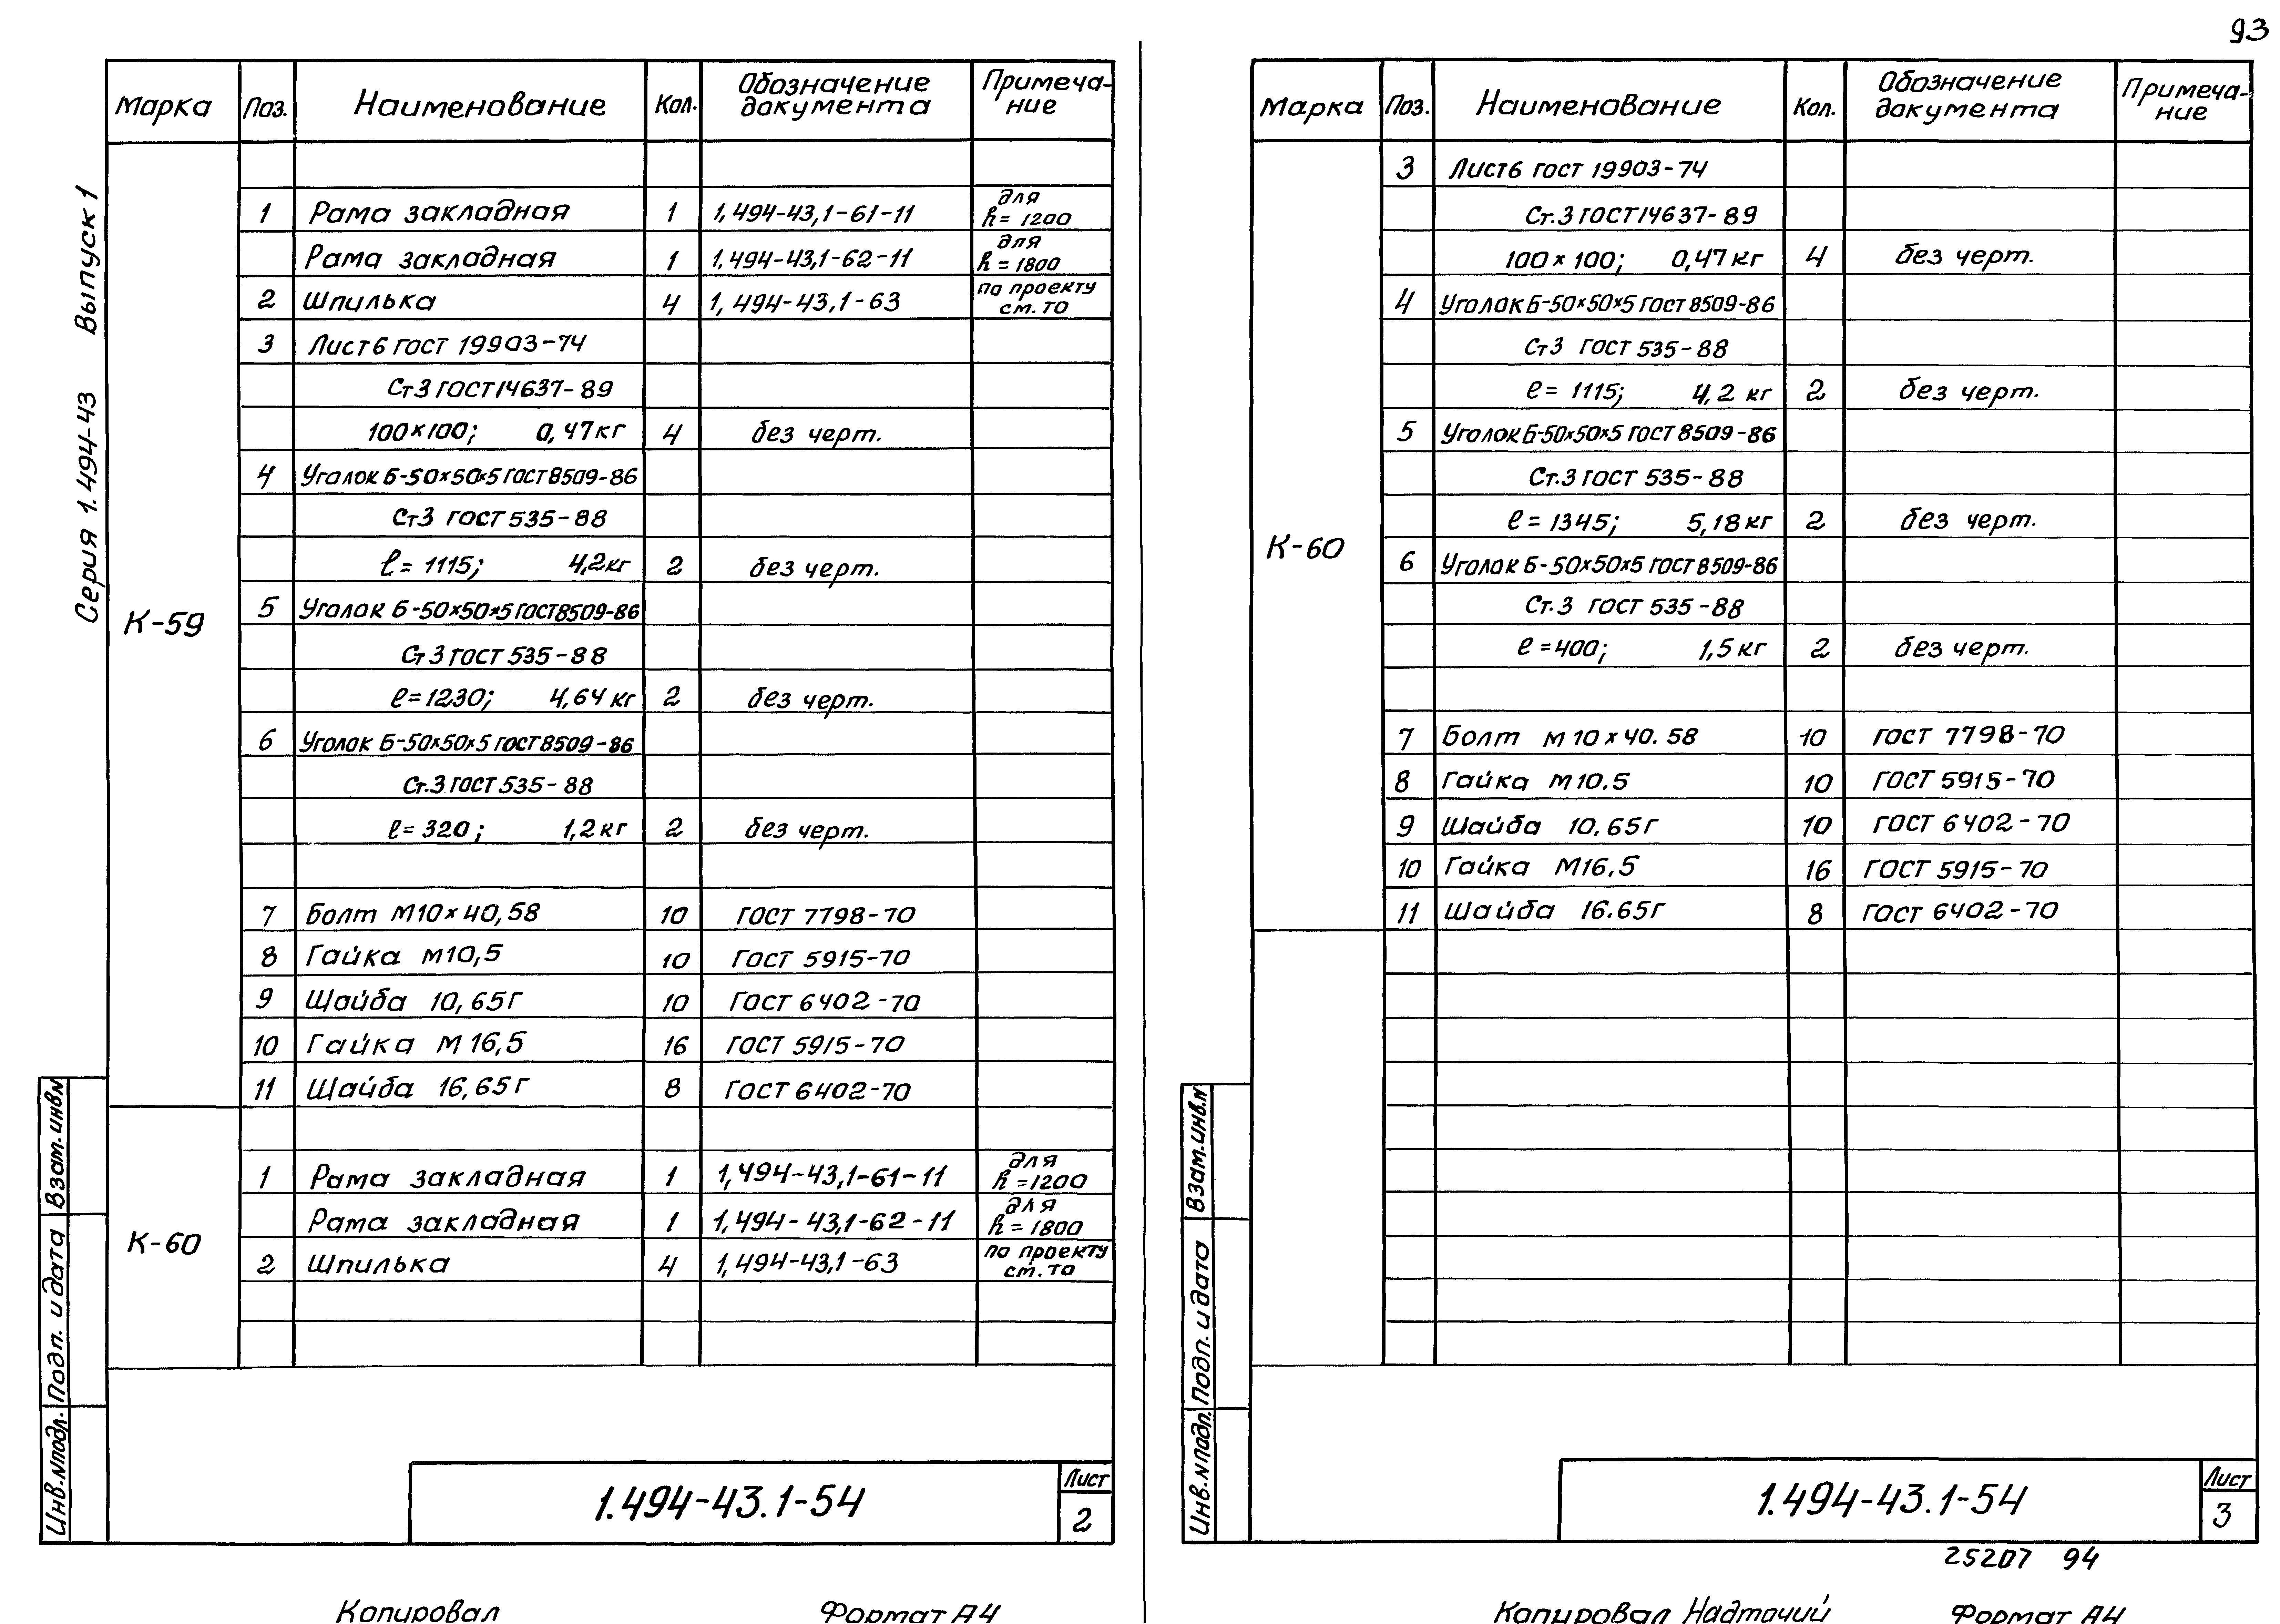 93
Серия 1.494-43 Выпуск 1
Марка Поз. Наименование Кол. Обозначение документа Примеча-ние
К-59
1 Рама закладная 1 1,494-43,1-61-11 для h=1200
Рама закладная 1 1,494-43,1-62-11 для h=1800
2 Шпилька 4 1,494-43,1-63 по проекту см. ТО
3 Лист 6 ГОСТ 19903-74
Ст3 ГОСТ 14637-89
100×100; 0,47кг 4 без черт.
4 Уголок Б-50×50×5 ГОСТ 8509-86
Ст3 ГОСТ 535-88
ℓ=1115; 4,2кг 2 без черт.
5 Уголок Б-50×50×5 ГОСТ 8509-86
Ст3 ГОСТ 535-88
ℓ=1230; 4,64 кг 2 без черт.
6 Уголок Б-50×50×5 ГОСТ 8509-86
Ст.3 ГОСТ 535-88
ℓ=320; 1,2кг 2 без черт.
7 Болт М10×40,58 10 ГОСТ 7798-70
8 Гайка М10,5 10 ГОСТ 5915-70
9 Шайба 10,65Г 10 ГОСТ 6402-70
10 Гайка М16,5 16 ГОСТ 5915-70
11 Шайба 16,65Г 8 ГОСТ 6402-70
К-60
1 Рама закладная 1 1,494-43,1-61-11 для h=1200
Рама закладная 1 1,494-43,1-62-11 для h=1800
2 Шпилька 4 1,494-43,1-63 по проекту см. ТО
Взам.инв.N
Подп. и дата
Инв.Nподл.
1.494-43.1-54
Лист
2
Копировал Формат А4
Марка Поз. Наименование Кол. Обозначение документа Примеча-ние
К-60
3 Лист 6 ГОСТ 19903-74
Ст.3 ГОСТ 14637-89
100×100; 0,47кг 4 без черт.
4 Уголок Б-50×50×5 ГОСТ 8509-86
Ст3 ГОСТ 535-88
ℓ=1115; 4,2 кг 2 без черт.
5 Уголок Б-50×50×5 ГОСТ 8509-86
Ст.3 ГОСТ 535-88
ℓ=1345; 5,18кг 2 без черт.
6 Уголок Б-50×50×5 ГОСТ 8509-86
Ст.3 ГОСТ 535-88
ℓ=400; 1,5кг 2 без черт.
7 Болт М10×40.58 10 ГОСТ 7798-70
8 Гайка М10.5 10 ГОСТ 5915-70
9 Шайба 10,65Г 10 ГОСТ 6402-70
10 Гайка М16,5 16 ГОСТ 5915-70
11 Шайба 16.65Г 8 ГОСТ 6402-70
Взам.инв.N
Подп. и дата
Инв.Nподл.
1.494-43.1-54
Лист
3
25207 94
Копировал Надточий Формат А4